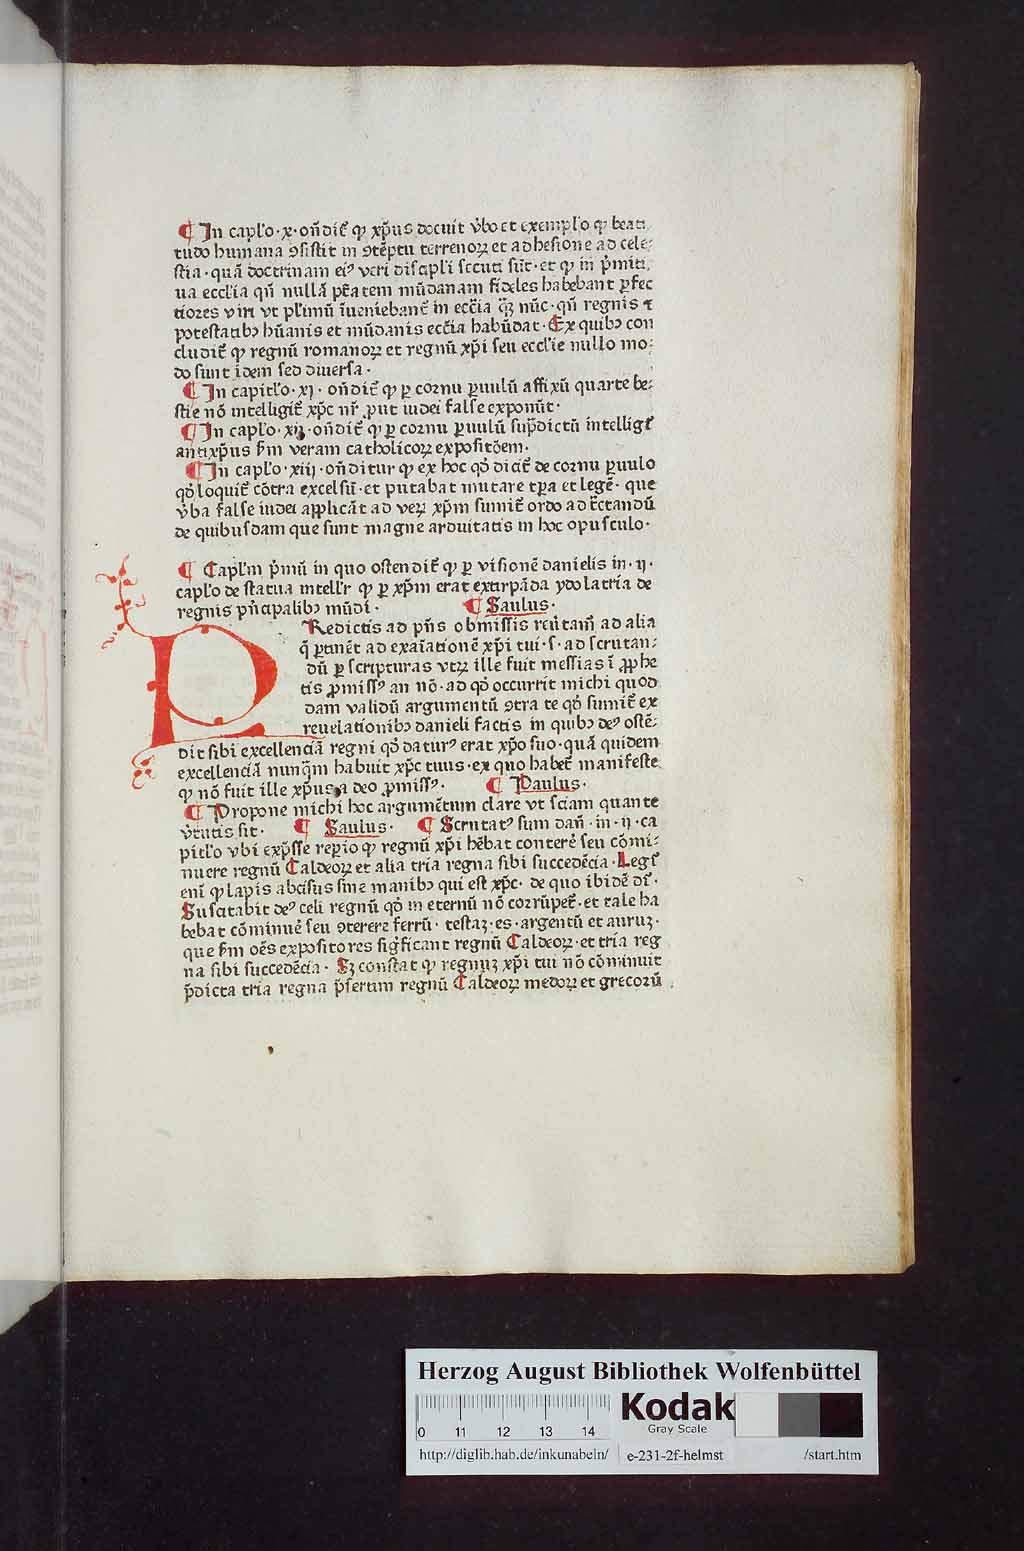 ¶ In capl'o · x · on̄dit᷑ ꝙ xp̄us docuit v̓bo et exempl'o ꝙ beati
tudo humana ꝯsistit in ꝯtēptu terrenoꝝ et adhesione ad cele⸗
stia · quā doctrinam eiꝰ veri discipl'i secuti sūt · et ꝙ in p̓miti
ua eccl'ia qn̄ nullā ptātem mūdanam fideles habebant ꝑfec
tiores viri vt pl'imū īueniebant᷑ in eccīa qꝫ nūc · qn̄ regnis ⁊
potestatibꝫ hūanis et mūdanis eccīa habūdat · Ex quibꝫ con
cludit᷑ ꝙ regnū romanoꝝ et regnū xp̄i seu eccl'ie nullo mo⸗
do sunt idem sed diuersa ·
¶ In capitl'o · xj · on̄dit᷑ ꝙ ꝑ cornu ꝑuulū affixū quarte be⸗
stie nō intelligit᷑ xp̄c nr̄ ꝓut iudei false exponūt ·
¶ In capl'o · xij · on̄dit᷑ ꝙ ꝑ cornu ꝑuulū sup̄dictū intelligit᷑
antixp̄us ẜm veram catholicoꝝ expositōem ·
¶ In capl'o · xiij · on̄ditur ꝙ ex hoc qd̓ dicit᷑ de cornu ꝑuulo
qd̓ loquit᷑ cōtra excelsū · et putabat mutare tꝑa et legē · que
v̓ba false iudei applicāt ad veꝝ xp̄m sumit᷑ ordo ad tractandū
de quibusdam que sunt magne arduitatis in hoc opusculo ·
¶ Capl'm p̓mū in quo ostendit᷑ ꝙ ꝑ visionē danielis in · ij ·
capl'o de statua intell'r ꝙ ꝑ xp̄m erat extirpāda ydolatria de
regnis pn̓cipalibꝫ mūdi · ¶ Saulus ·
PRedictis ad pn̄s obmissis reūtam̄ ad alia
q̄ ꝑtinēt ad exaīationē xp̄i tui · s · ad scrutan⸗
dū ꝑ scripturas vtꝝ ille fuit messias ī ꝓphe
tis ꝓmissꝰ an nō · ad qd̓ occurrit michi quod
dam validū argumentū ꝯtra te qd̓ sumit᷑ ex
reuelationibꝫ danieli factis in quibꝫ deꝰ ostē⸗
dit sibi excellenciā regni qd̓ daturꝰ erat xp̄o suo · quā quidem
excellenciā nunq̄m habuit xp̄c tuus · ex quo habet᷑ manifeste
ꝙ nō fuit ille xp̄us a deo ꝓmissꝰ · ¶ Paulus ·
¶ Propone michi hoc argumētum clare vt sciam quante
v̓tutis sit · ¶ Saulus · ¶ Scrutatꝰ sum dan̄ · in · ij · ca
pitl'o vbi exp̄sse reꝑio ꝙ regnū xp̄i hēbat conterē seu cōmi⸗
nuere regnū Caldeoꝝ et alia tria regna sibi succedēcia · Legit᷑
enī ꝙ lapis abcisus sine manibꝫ qui est xp̄c · de quo ibidē dr̄ ·
Suscitabit deꝰ celi regnū qd̓ in eternū nō corrūpet᷑ · et tale ha
bebat cōminuē seu ꝯterere ferrū · testaꝫ · es · argentū et auruꝫ ·
que ẜm oēs expositores sig̓ficant regnū Caldeoꝝ · et tria reg
na sibi succedēcia · Sꝫ constat ꝙ regnuꝫ xp̄i tui nō cōminuit
p̄dicta tria regna p̄sertim regnū Caldeoꝝ medoꝝ et grecorū
Herzog August Bibliothek Wolfenbüttel
0 11 12 13 14
Kodak
Gray Scale
http://diglib.hab.de/inkunabeln/ e-231-2f-helmst /start.htm